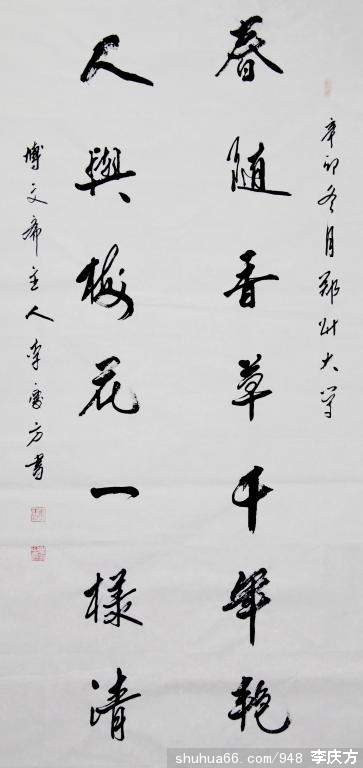 辛卯冬月鄭州大学
春随香草千年艳
人與梅花一樣清
博文斋主人李庆方書
shuhua66.com/948 李庆方